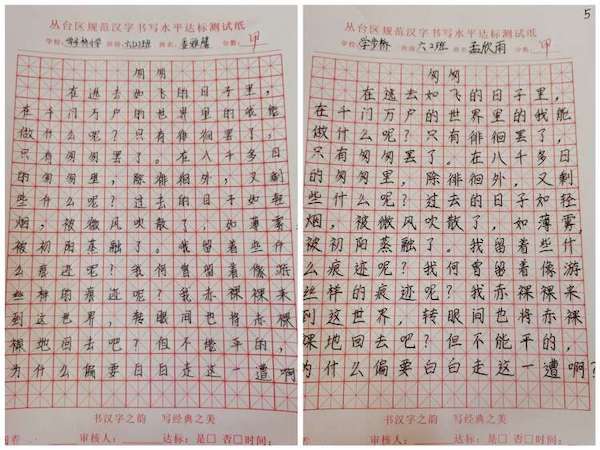 丛台区规范汉字书写水平达标测试纸
学校:学步桥小学 班级:六(2)班 姓名: 分数:甲
匆匆
在逃去如飞的日子里,
在千门万户的世界里的我能
做什么呢?只有徘徊罢了,
只有匆匆罢了。在八千多日
的匆匆里,除徘徊外,又剩
些什么呢?过去的日子如轻
烟,被微风吹散了,如薄雾,
被初阳蒸融了。我留着些什
么痕迹呢?我何曾留着像游
丝样的痕迹呢?我赤裸裸来
到这世界,转眼间也将赤裸
裸地回去吧?但不能平的,
为什么偏要白白走这一遭啊
书汉字之韵 写经典之美
审核人: 达标:是□ 否□ 时间:
5
丛台区规范汉字书写水平达标测试纸
学校:学步桥 班级:六2班 姓名:孟欣雨 分数:甲
匆匆
在逃去如飞的日子里,
在千门万户的世界里的我能
做什么呢?只有徘徊罢了,
只有匆匆罢了。在八千多日
的匆匆里,除徘徊外,又剩
些什么呢?过去的日子如轻
烟,被微风吹散了,如薄雾,
被初阳蒸融了。我留着些什
么痕迹呢?我何曾留着像游
丝样的痕迹呢?我赤裸裸来
到这世界,转眼间也将赤裸
裸地回去吧?但不能平的,
为什么偏要白白走这一遭啊?
书汉字之韵 写经典之美
审核人: 达标:是□ 否□ 时间: